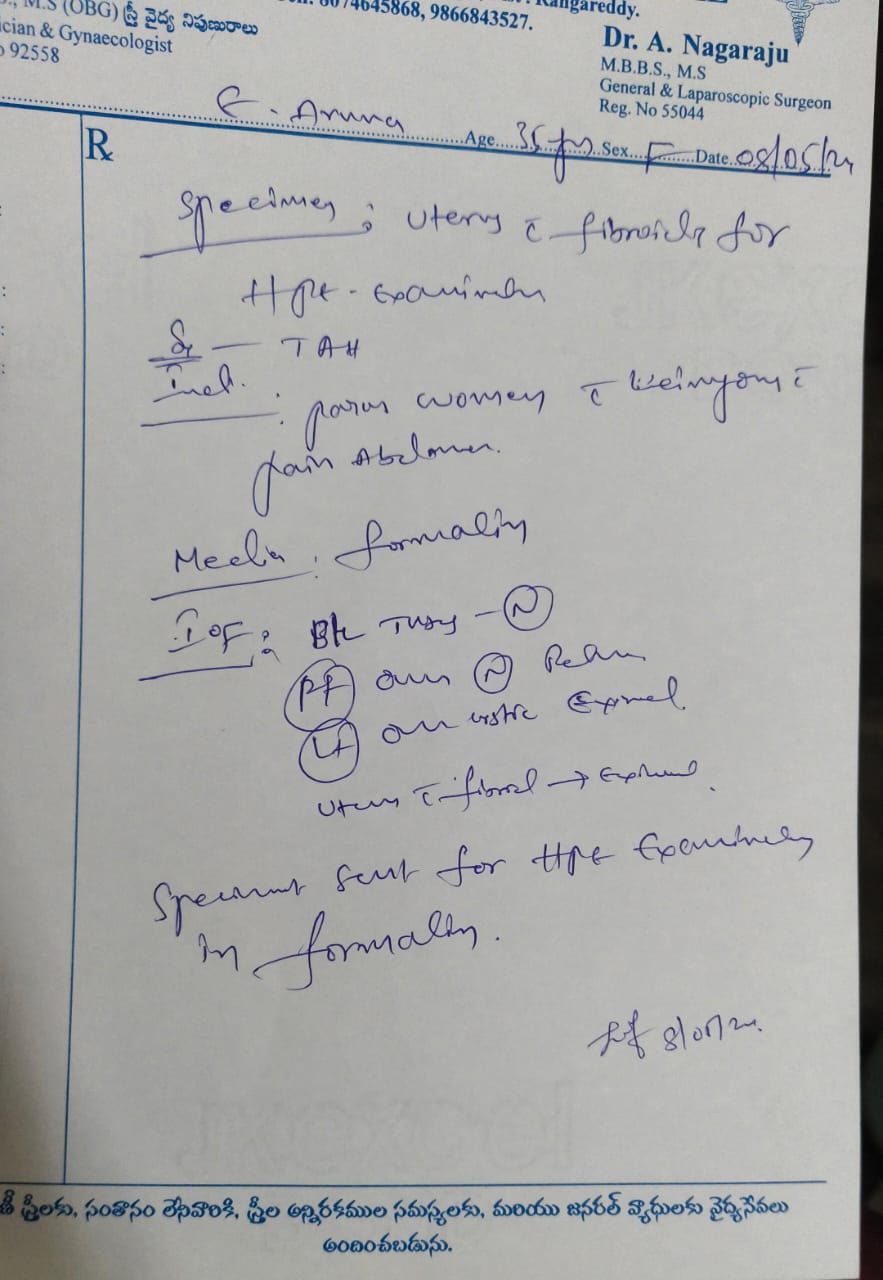 M.S (OBG) స్త్రీ వైద్య నిపుణురాలు
cian & Gynaecologist
92558
Rangareddy.
8074645868, 9866843527.
Dr. A. Nagaraju
M.B.B.S., M.S
General & Laparoscopic Surgeon
Reg. No 55044
E. Aruna Age 35 yrs Sex F Date 08/05/24
Rx
Specimen : Uterus c̄ fibroids for
HPE - Examination
Sx — TAH
Ind. : parus women c̄ c̄
pain Abdomen.
Media : formalin
IOF : B/L Tubes - N
RT Ovary N
LT Ovary cystic
Uterus c̄ fibroid →
Specimen sent for HPE Examination
in formalin.
8/05/24.
స్త్రీలకు, సంతానం లేనివారికి, స్త్రీల అన్నిరకముల సమస్యలకు, మరియు జనరల్ వ్యాధులకు వైద్యసేవలు
అందించబడును.